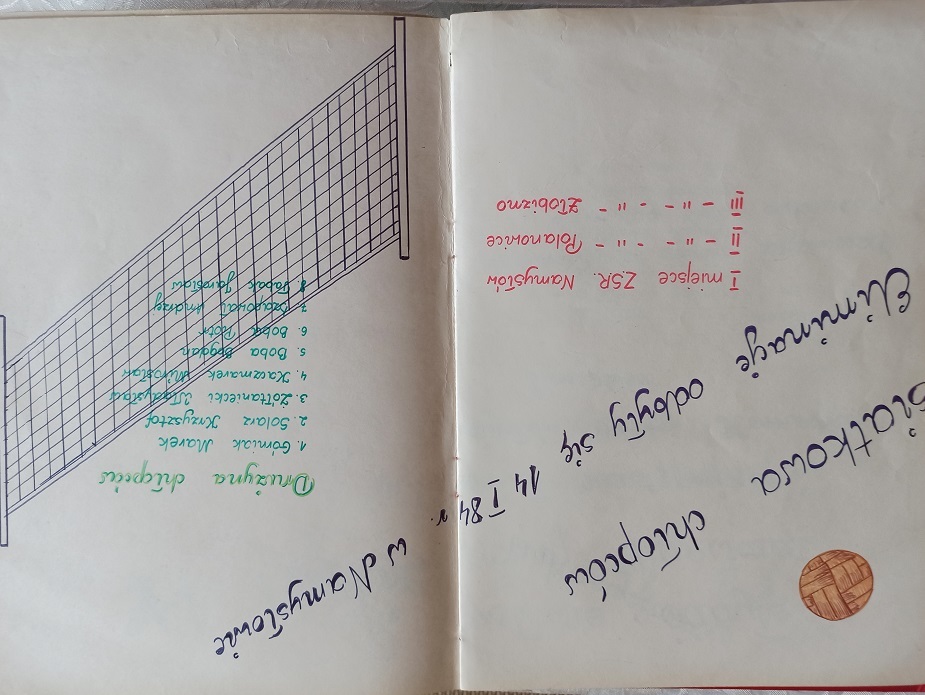 Siatkowa chłopców
Eliminacje odbyły się 14 I 84 r. w Namysłowie
I miejsce Z.S.R. Namysłów
II - " - - " - Polanowice
III - " - - " - Złobizno
Drużyna chłopców
1. Górniak Marek
2. Solarz Krzysztof
3. Żółtaniecki Władysław
4. Kaczmarek Mirosław
5. Boba Bogdan
6. Boba Piotr
7. Andrzej
8. Babak Jarosław